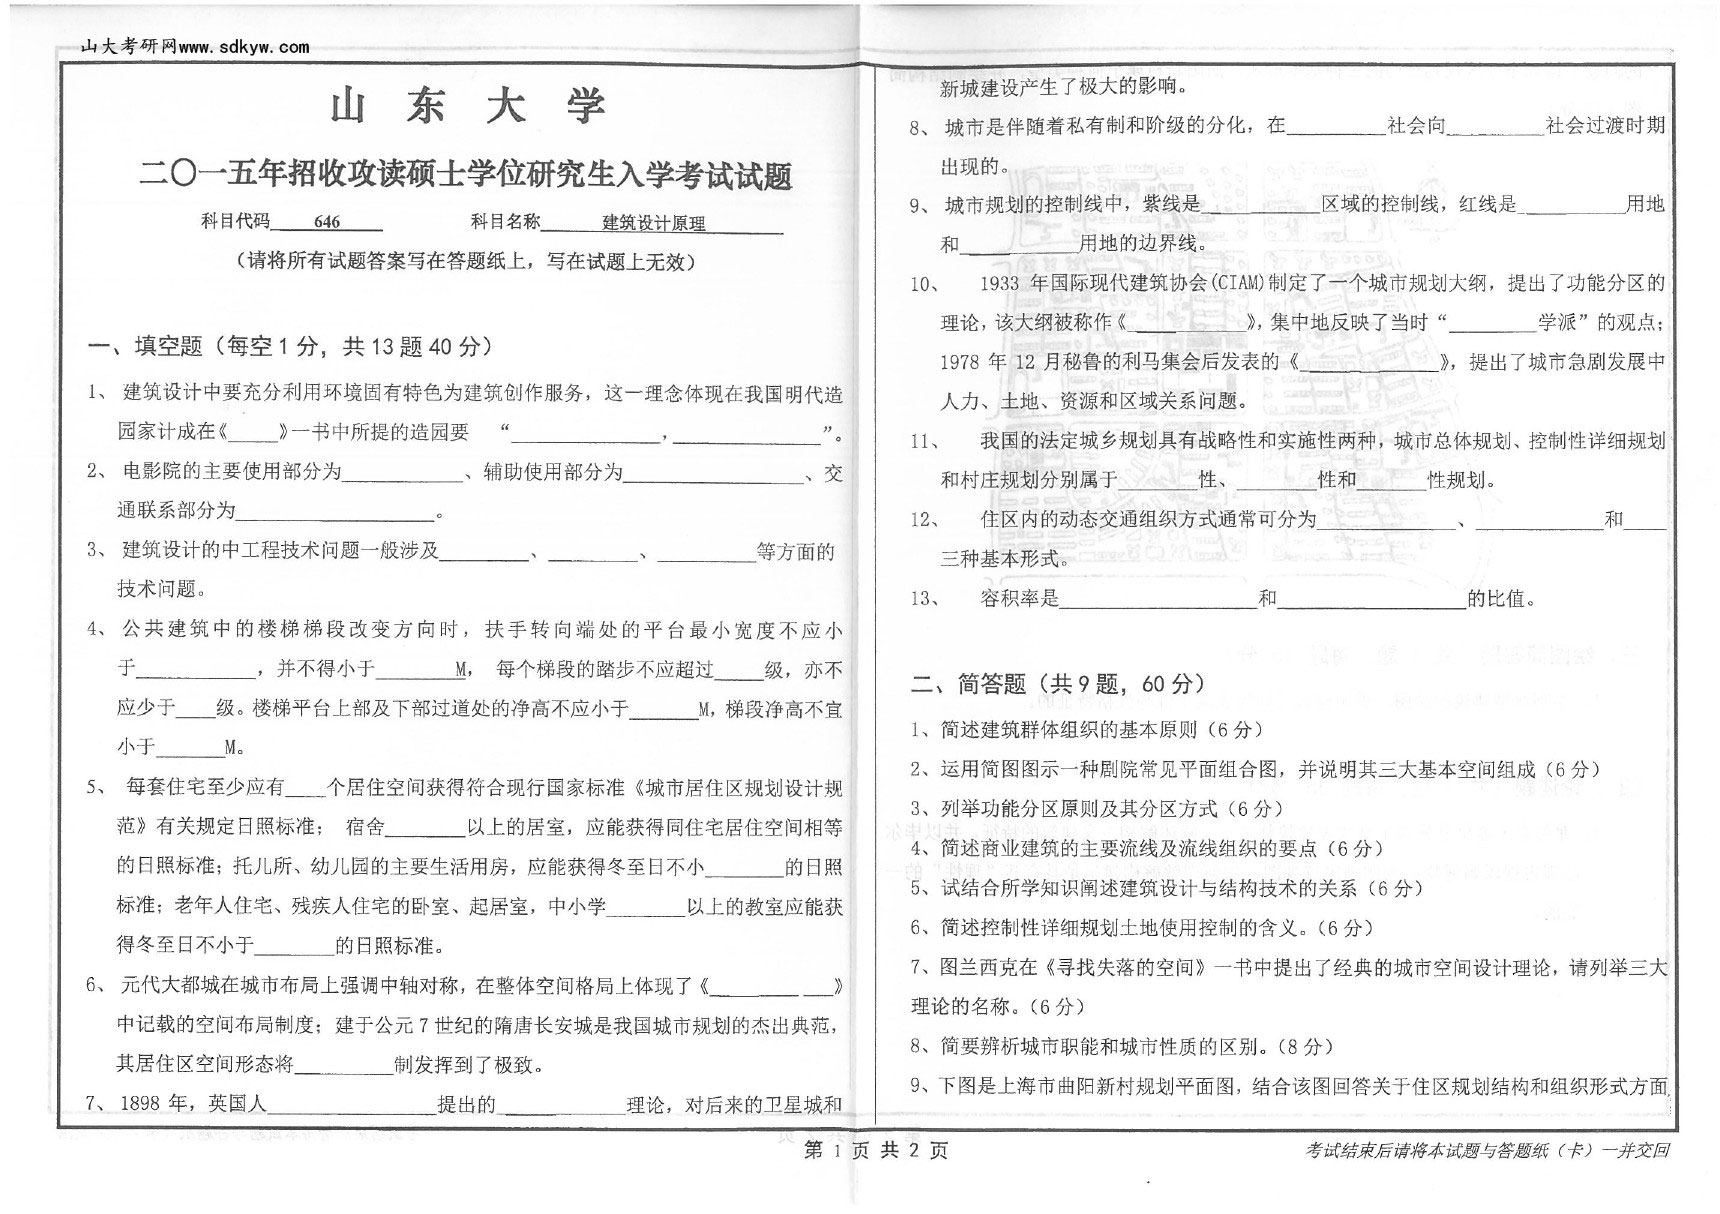 山大考研网www.sdkyw.com
山 东 大 学
二〇一五年招收攻读硕士学位研究生入学考试试题
科目代码 646 科目名称 建筑设计原理
（请将所有试题答案写在答题纸上，写在试题上无效）
一、填空题（每空1分，共13题40分）
1、 建筑设计中要充分利用环境固有特色为建筑创作服务，这一理念体现在我国明代造
园家计成在《_____》一书中所提的造园要 “_______________，_______________”。
2、 电影院的主要使用部分为____________、辅助使用部分为__________________、交
通联系部分为____________________。
3、 建筑设计的中工程技术问题一般涉及_________、_________、__________等方面的
技术问题。
4、 公共建筑中的楼梯梯段改变方向时，扶手转向端处的平台最小宽度不应小
于____________，并不得小于________M， 每个梯段的踏步不应超过_____级，亦不
应少于____级。楼梯平台上部及下部过道处的净高不应小于_______M，梯段净高不宜
小于_______M。
5、 每套住宅至少应有____个居住空间获得符合现行国家标准《城市居住区规划设计规
范》有关规定日照标准； 宿舍________以上的居室，应能获得同住宅居住空间相等
的日照标准；托儿所、幼儿园的主要生活用房，应能获得冬至日不小________的日照
标准；老年人住宅、残疾人住宅的卧室、起居室，中小学________以上的教室应能获
得冬至日不小于________的日照标准。
6、 元代大都城在城市布局上强调中轴对称，在整体空间格局上体现了《_________ ___》
中记载的空间布局制度；建于公元7世纪的隋唐长安城是我国城市规划的杰出典范，
其居住区空间形态将__________制发挥到了极致。
7、 1898 年，英国人_________________提出的_____________理论，对后来的卫星城和
新城建设产生了极大的影响。
8、 城市是伴随着私有制和阶级的分化，在__________社会向__________社会过渡时期
出现的。
9、 城市规划的控制线中，紫线是____________区域的控制线，红线是___________用地
和____________用地的边界线。
10、 1933 年国际现代建筑协会(CIAM)制定了一个城市规划大纲，提出了功能分区的
理论，该大纲被称作《____________》，集中地反映了当时“_________学派”的观点；
1978 年 12 月秘鲁的利马集会后发表的《______________》，提出了城市急剧发展中
人力、土地、资源和区域关系问题。
11、 我国的法定城乡规划具有战略性和实施性两种，城市总体规划、控制性详细规划
和村庄规划分别属于________性、________性和_______性规划。
12、 住区内的动态交通组织方式通常可分为______________、_____________和____
三种基本形式。
13、 容积率是____________________和___________________的比值。
二、简答题（共9题，60分）
1、简述建筑群体组织的基本原则（6分）
2、运用简图图示一种剧院常见平面组合图，并说明其三大基本空间组成（6分）
3、列举功能分区原则及其分区方式（6分）
4、简述商业建筑的主要流线及流线组织的要点（6分）
5、试结合所学知识阐述建筑设计与结构技术的关系（6分）
6、简述控制性详细规划土地使用控制的含义。（6分）
7、图兰西克在《寻找失落的空间》一书中提出了经典的城市空间设计理论，请列举三大
理论的名称。（6分）
8、简要辨析城市职能和城市性质的区别。（8分）
9、下图是上海市曲阳新村规划平面图，结合该图回答关于住区规划结构和组织形式方面
第 1 页 共 2 页
考试结束后请将本试题与答题纸（卡）一并交回